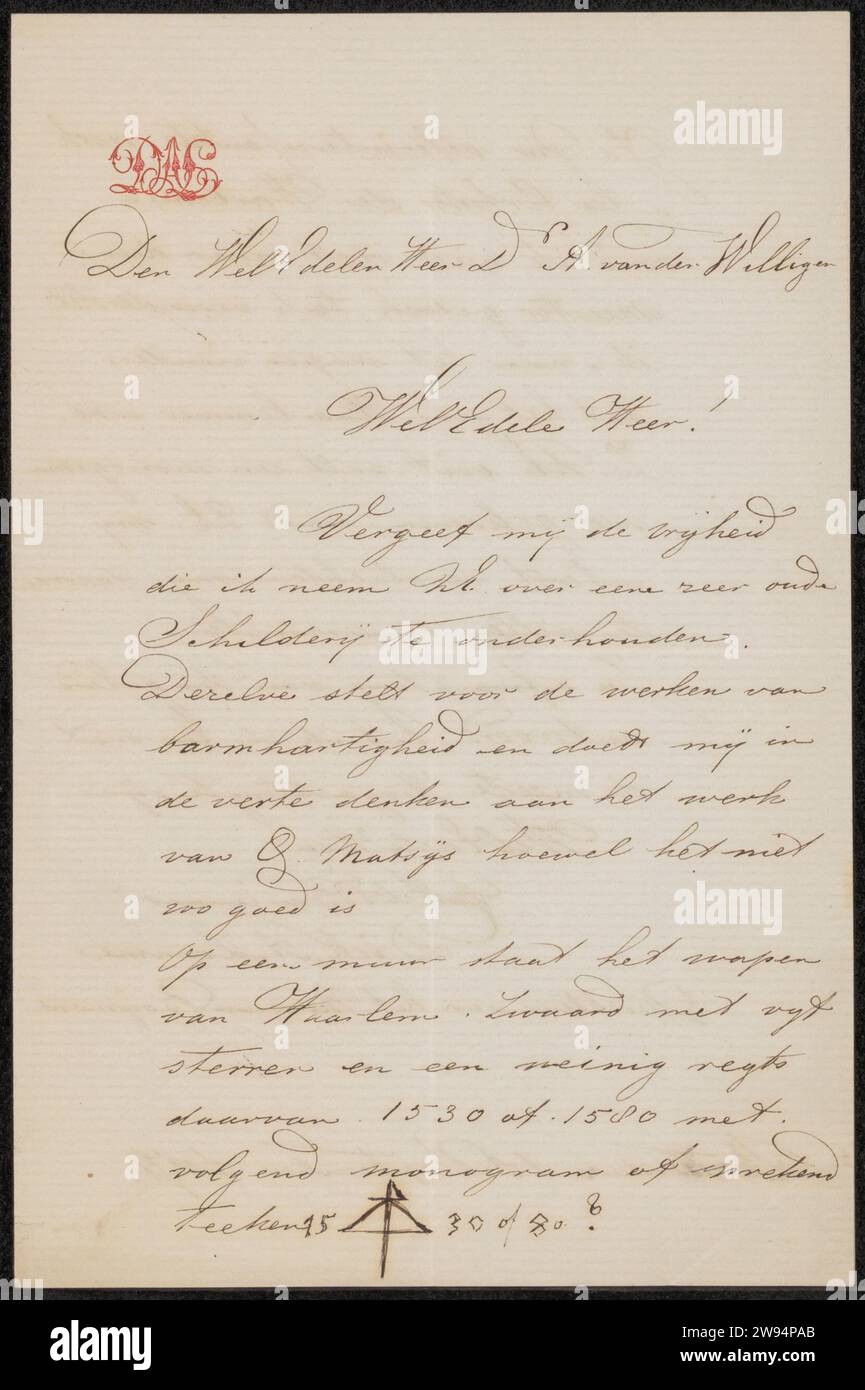 DAS
Den WelEdelen Heer Dr A. van der Willigen
WelEdele Heer!
Vergeef mij de vrijheid
die ik neem UE. over eene zeer oude
Schilderij te onderhouden.
Dezelve stelt voor de werken van
barmhartigheid en doet mij in
de verte denken aan het werk
van Q. Matsijs hoewel het niet
zoo goed is
Op een muur staat het wapen
van Haarlem. Zwaard met vyf
sterren en een weinig regts
daarvan 1530 of 1580 met.
volgend monogram of sprekend
teeken 15 30 of 80?
alamy
Image ID: 2W94PAB
www.alamy.com